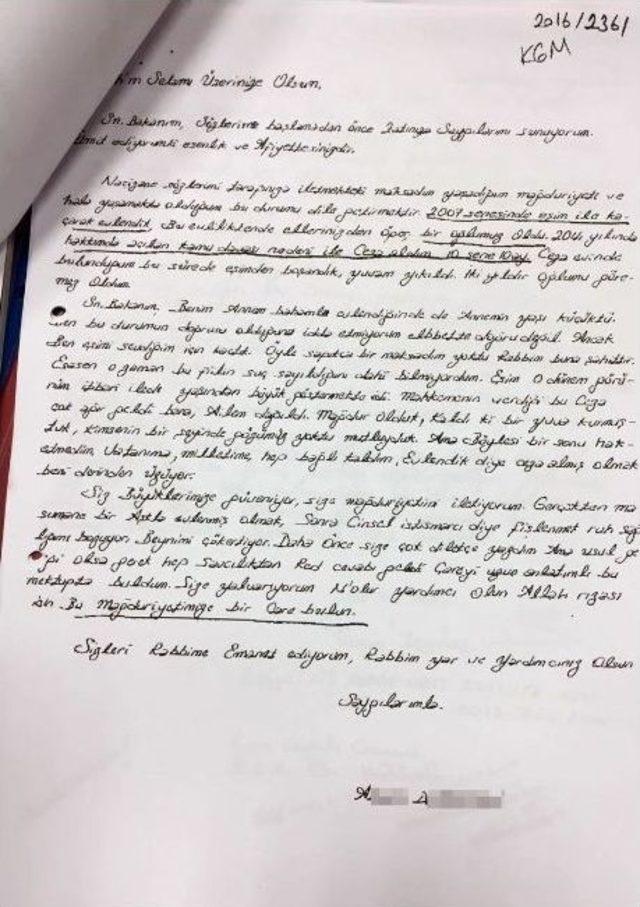 2016/2361
KGM
'ın Selamı Üzerinize Olsun,
Sn. Bakanım, Sözlerime başlamadan önce Zatınıza Saygılarımı sunuyorum.
Ümit ediyorumki esenlik ve Afiyettesinizdir.
Naçizane sözlerimi tarafınıza iletmekteki maksadım yaşadığım mağduriyeti ve
hala yaşamakta olduğum bu durumu dile getirmektir. 2007 senesinde eşim ile ka-
çarak evlendik. Bu evliliktende ellerinizden öper bir oğlumuz Oldu. 2014 yılında
hakkımda açılan kamu davası nedeni ile Ceza aldım 10 sene 10 ay. Ceza evinde
bulunduğum bu sürede eşimden boşandık, yuvam yıkıldı. İki yıldır oğlumu göre-
mez Oldum.
Sn. Bakanım, Benim Annem babamla evlendiğinde de Annemin yaşı küçüktü.
Ben bu durumun doğru olduğunu iddia etmiyorum elbbette doğru değil. Ancak
Ben eşimi sevdiğim için kaçtık. Öyle sapıkca bir maksadım yoktu Rabbim buna şahittir.
Esasen o zaman bu fiilin suç sayıldığını dahi bilmiyordum. Eşim O dönem görü-
nüm itibari ile de yaşından büyük göstermekte idi. Mahkemenin verdiği bu Ceza
çok ağır geldi bana, Ailem dağıldı. Mağdur Olduk, Kaldı ki bir yuva kurmuş-
tuk, kimsenin bir şeyinde gözümüz yoktu mutluyduk. Ama Böylesi bir sonu hak-
etmedim, Vatanıma, milletime, hep bağlı kaldım, Evlendik diye ceza almış olmak
beni derinden üzüyor.
Siz Büyüklerimize güveniyor, size mağduriyetimi iletiyorum. Gerçekten ma
sumane bir Aşkla evlenmiş olmak, Sonra Cinsel istismarcı diye fişlenmek ruh sağ
lığımı bozuyor. Beynimi çökertiyor. Daha Önce size çok dilekçe yazdım Ama usul ge
ği Olsa gerek hep savcılıktan Red cevabı geldi Çareyi uzun anlatımlı bu
mektupta buldum. Size yalvarıyorum N'olur yardımcı Olun Allah rızası
için Bu Mağduriyetimize bir Çare bulun.
Sizleri Rabbime Emanet ediyorum, Rabbim yar ve Yardımcınız Olsun
Saygılarımla.
A